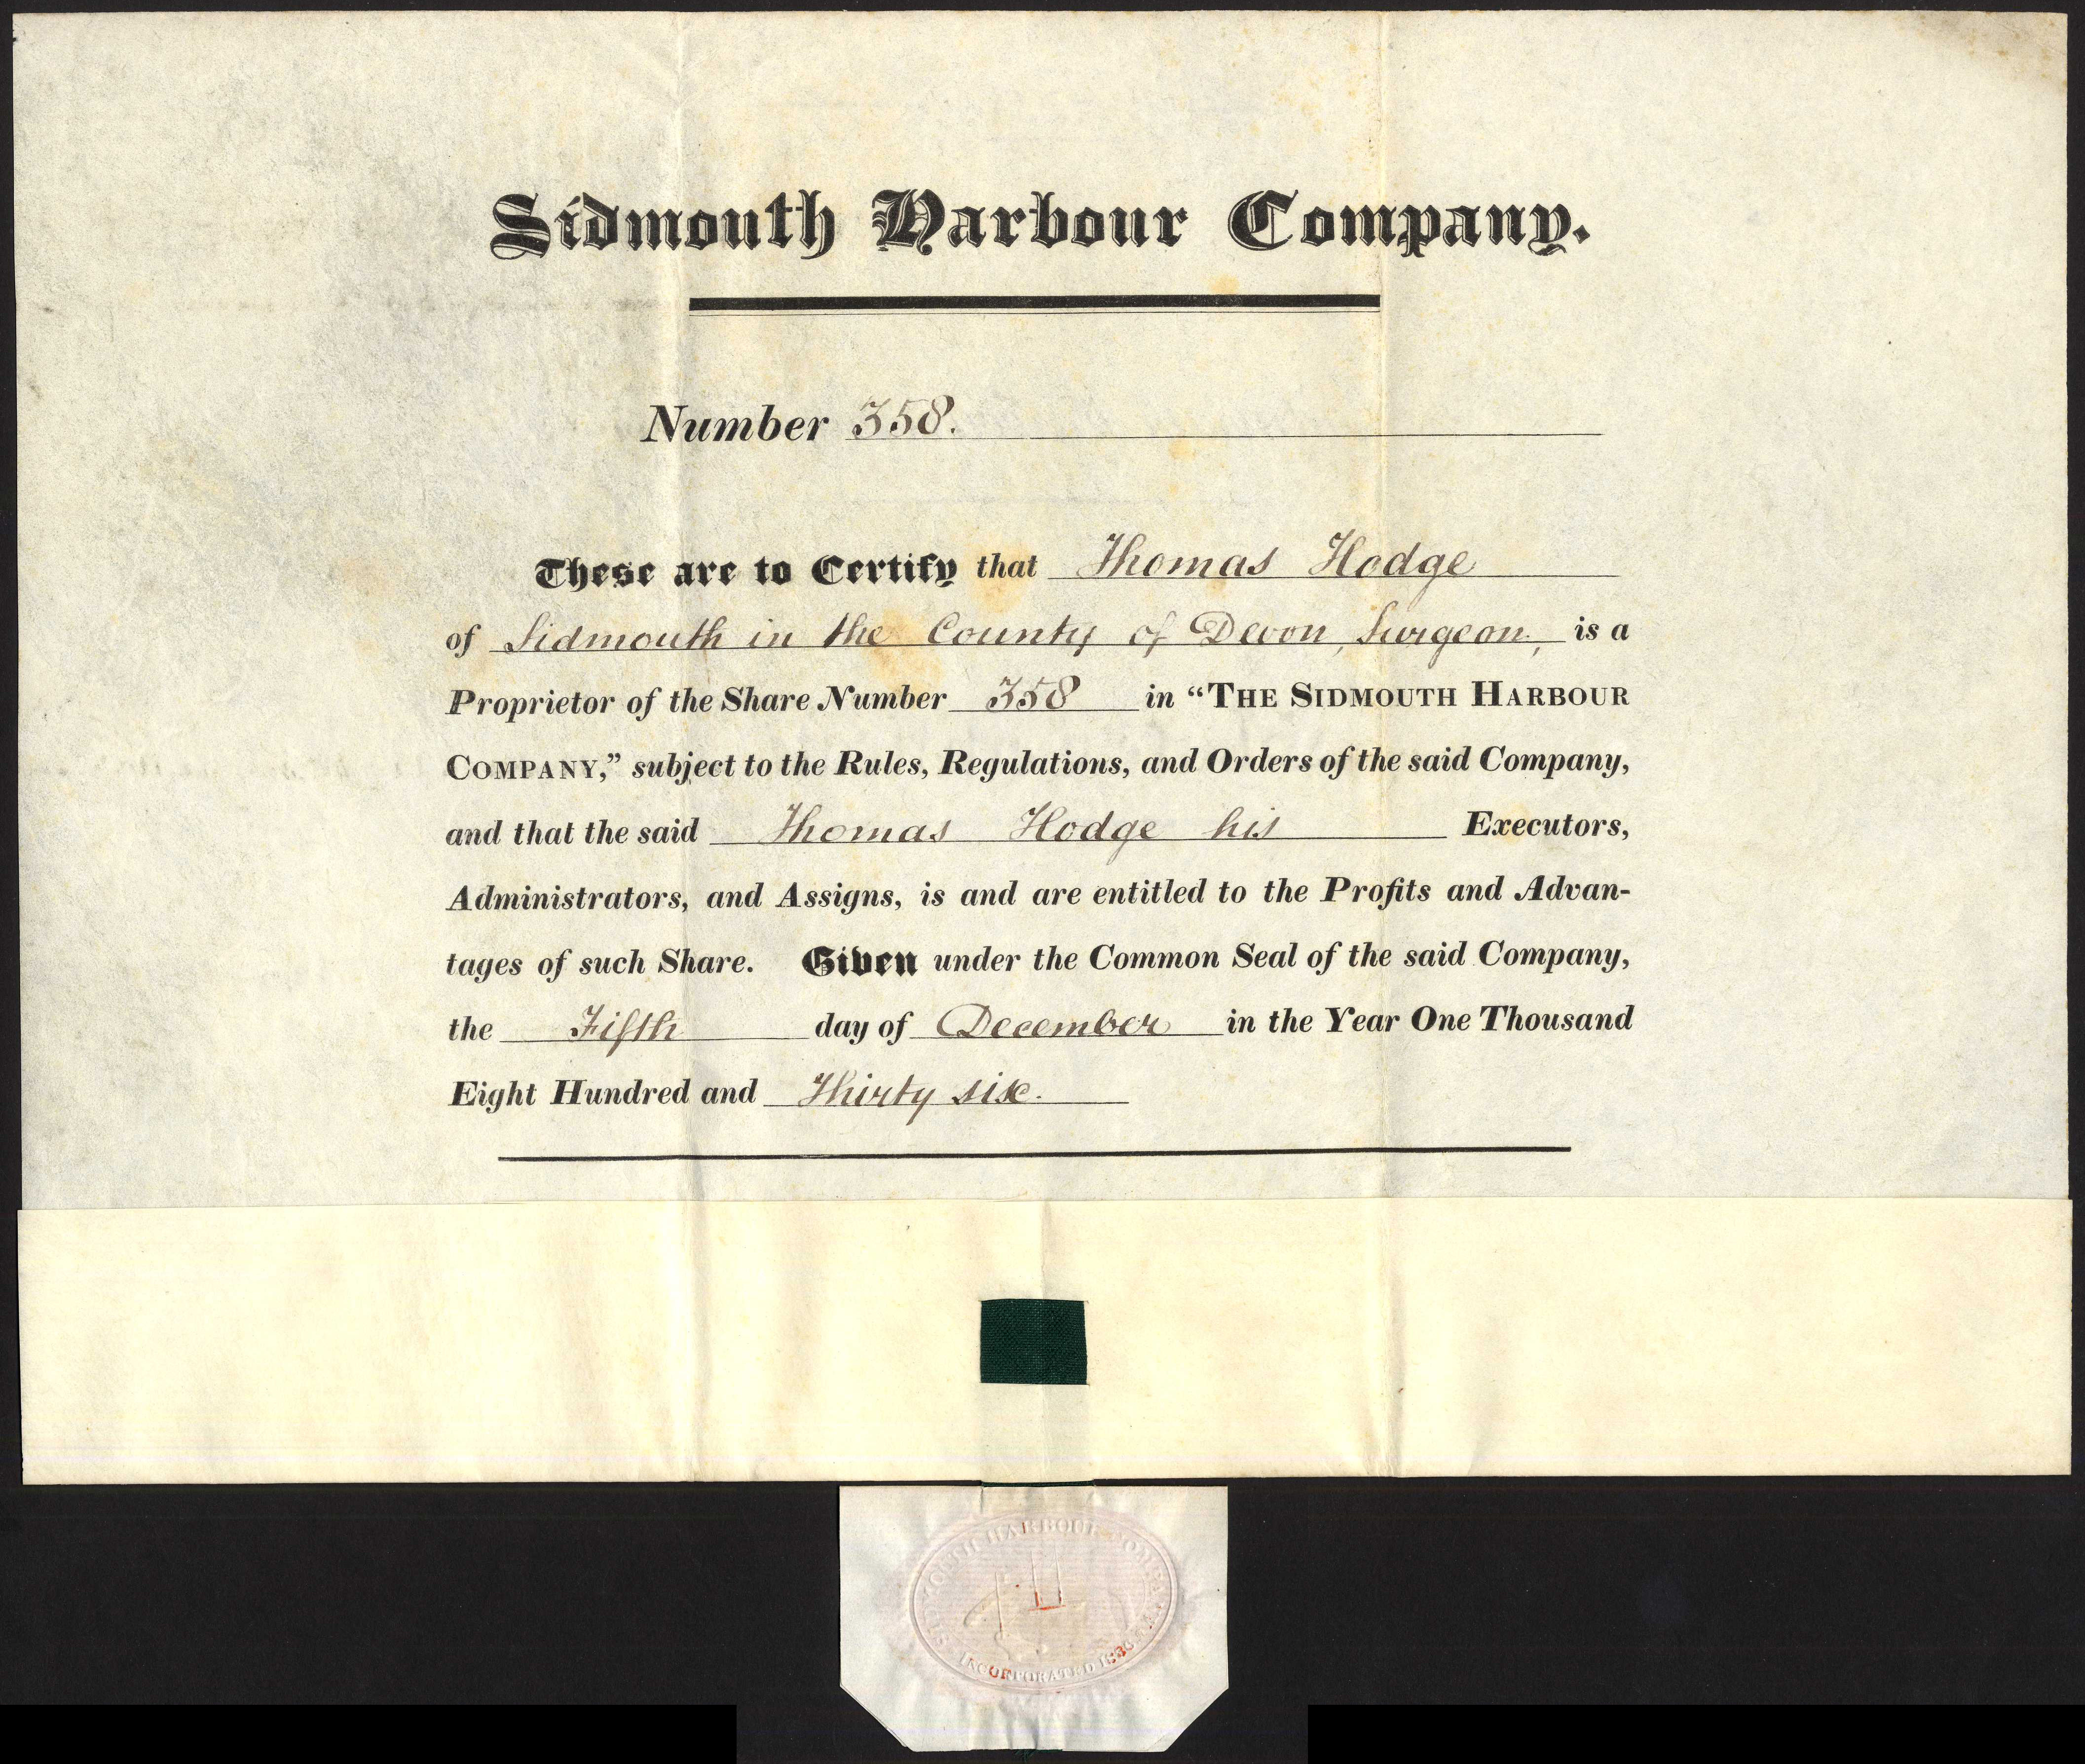 Sidmouth Harbour Company.
Number 358.
These are to Certify that Thomas Hodge
of Sidmouth in the County of Devon, Surgeon, is a
Proprietor of the Share Number 358 in “THE SIDMOUTH HARBOUR
COMPANY,” subject to the Rules, Regulations, and Orders of the said Company,
and that the said Thomas Hodge his Executors,
Administrators, and Assigns, is and are entitled to the Profits and Advan-
tages of such Share. Given under the Common Seal of the said Company,
the Fifth day of December in the Year One Thousand
Eight Hundred and Thirty six.
HARBOUR
INCORPORATED 1836